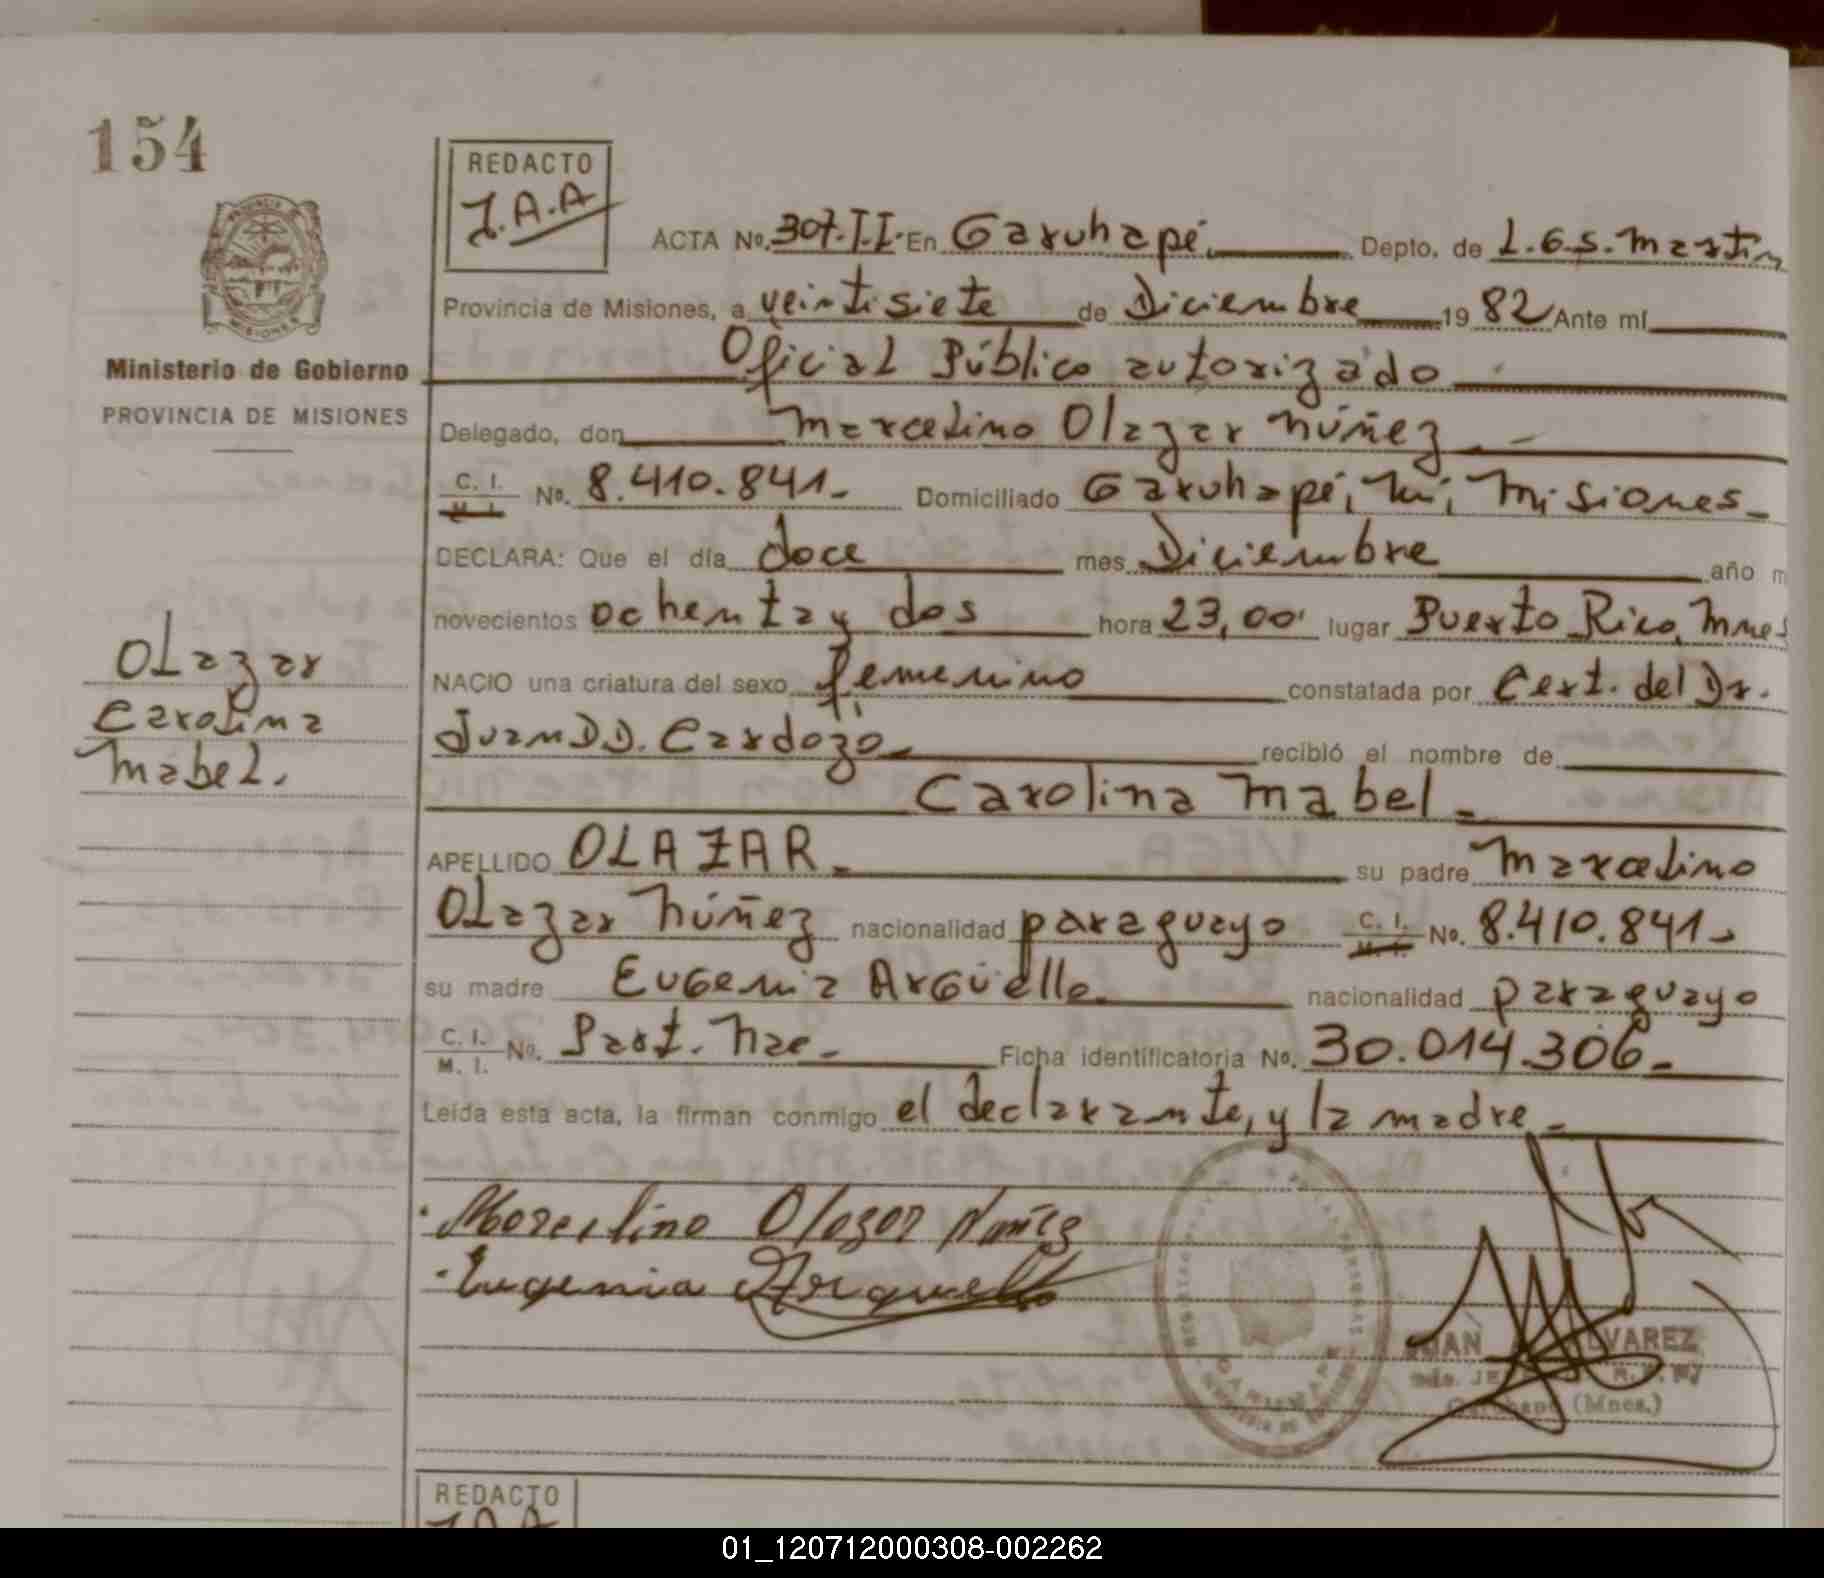 154
REDACTO
J.A.A
ACTA No. 307.I.I. En Garuhapé. Depto. de L.G.S. Martin
Provincia de Misiones, a veintisiete de Diciembre 1982 Ante mí
Oficial Público autorizado
Ministerio de Gobierno
PROVINCIA DE MISIONES
Delegado, don Marcelino Olazar Núñez
C. I. M. I. No. 8.410.841.- Domiciliado Garuhapé, Mí, Misiones.-
DECLARA: Que el día doce mes Diciembre año m
novecientos ochenta y dos hora 23,00' lugar Puerto Rico, Mnes
NACIO una criatura del sexo femenino constatada por Cert. del Dr.
Juan D.D. Cardozo.- recibió el nombre de
Carolina Mabel.-
Olazar
Carolina
Mabel.
APELLIDO OLAZAR.- su padre Marcelino
Olazar Núñez nacionalidad paraguayo C. I. M. I. No. 8.410.841.-
su madre Eugenia Argüello. nacionalidad paraguayo
C. I. M. I. No. Part. Nac.- Ficha identificatoria No. 30.014.306.-
Leída esta acta, la firman conmigo el declarante, y la madre.-
Marcelino Olazar Nuñez
Eugenia Arguello
JUAN ALVAREZ
Garuhape (Mnes.)
REDACTO
J.A.A
01_120712000308-002262